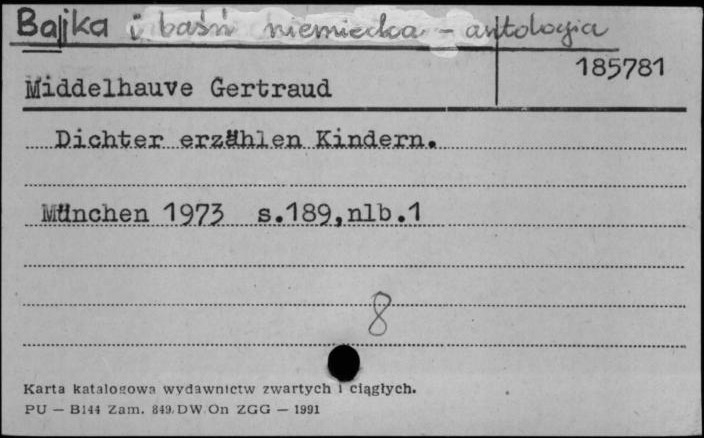 Bajka i baśń niemiecka - antologia
185781
Middelhauve Gertraud
Dichter erzählen Kindern.
München 1973 s.189,nlb.1
8
Karta katalogowa wydawnictw zwartych i ciągłych.
PU — B144 Zam. 849. DW. On ZGG — 1991